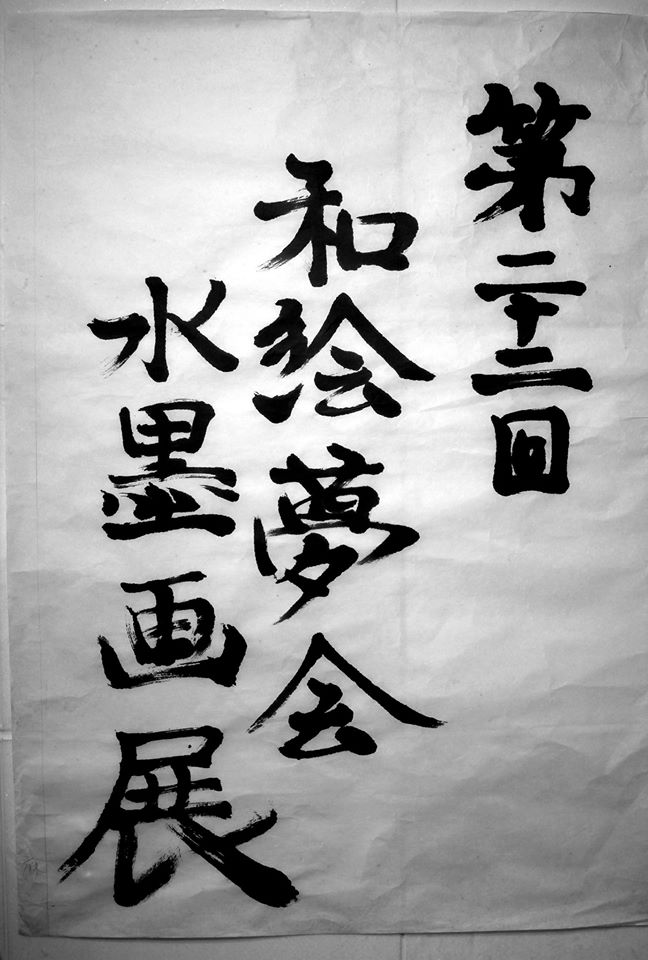 第二十二回
和絵夢会
水墨画展